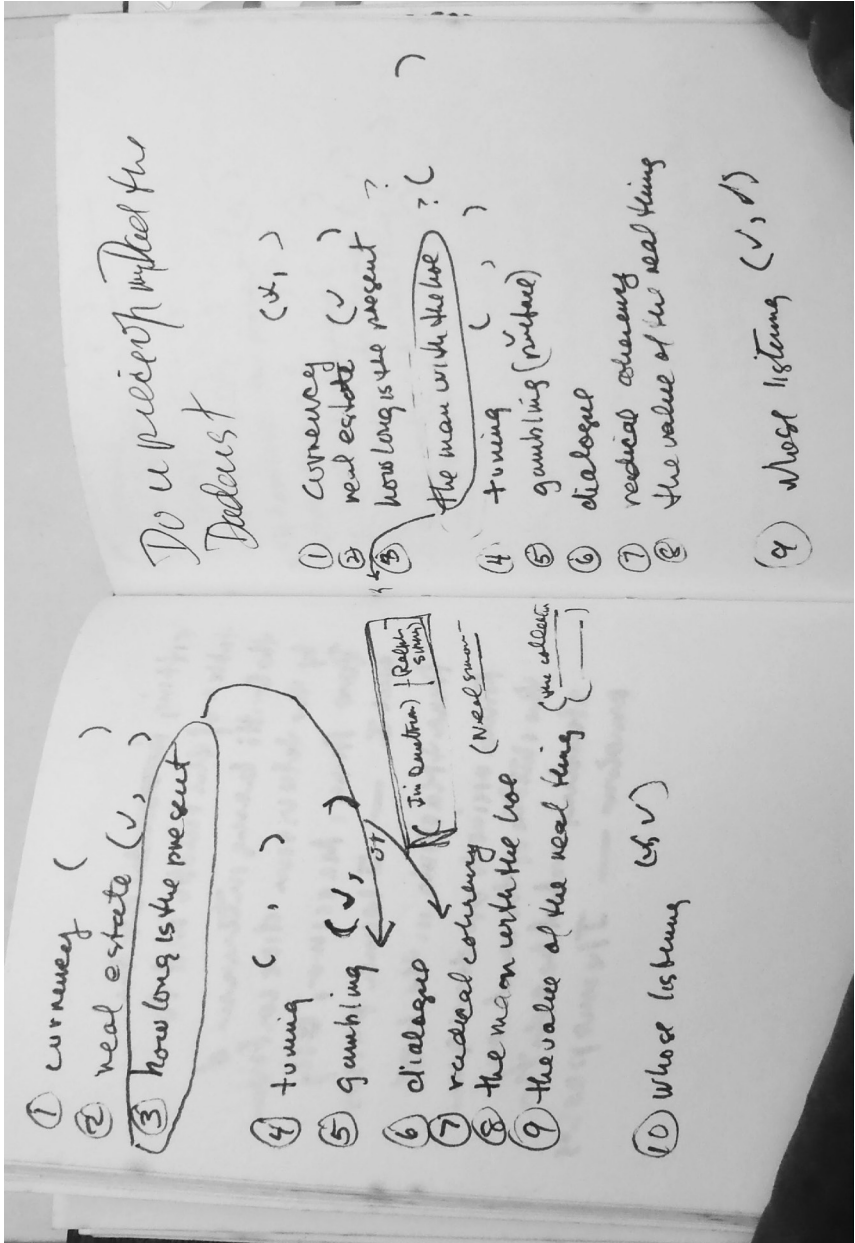 ① currency ( )
② real estate (√, )
③ how long is the present
④ tuning ( , )
⑤ gambling (√, )
or
⑥ dialogue
(Jim
Ralph
⑦ radical coherency
⑧ the man with the hoe (Neal
⑨ the value of the real thing (the collection
( )
⑩ whose listening
Do
the
① currency
② real estate (√ )
③ how long is the present ?
the man with the hoe ? ( )
④ tuning ( , )
⑤ gambling
⑥ dialogue
⑦ radical coherency
⑧ the value of the real thing
⑨ whose listening